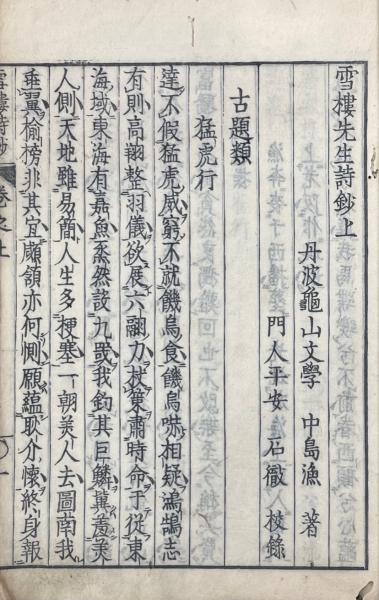 雪樓先生詩鈔上
丹波龜山文學　中島漁　著
門人平安　石徽　挍錄
古題類
猛虎行
達不假猛虎威窮不就饑烏食饑烏啾相疑鴻鵠志
有則高翔整羽儀欲展六翮力扙策肅時命于從東
海域東海有嘉魚烝然設九罭我釣其巨鱗冀羞美
人側天地雖易簡人生多梗塞一朝美人去圖南我
垂翼偷榜非其宜顑頷亦何惻願蘊耿介懷終身報
雪樓詩鈔　卷之上　一